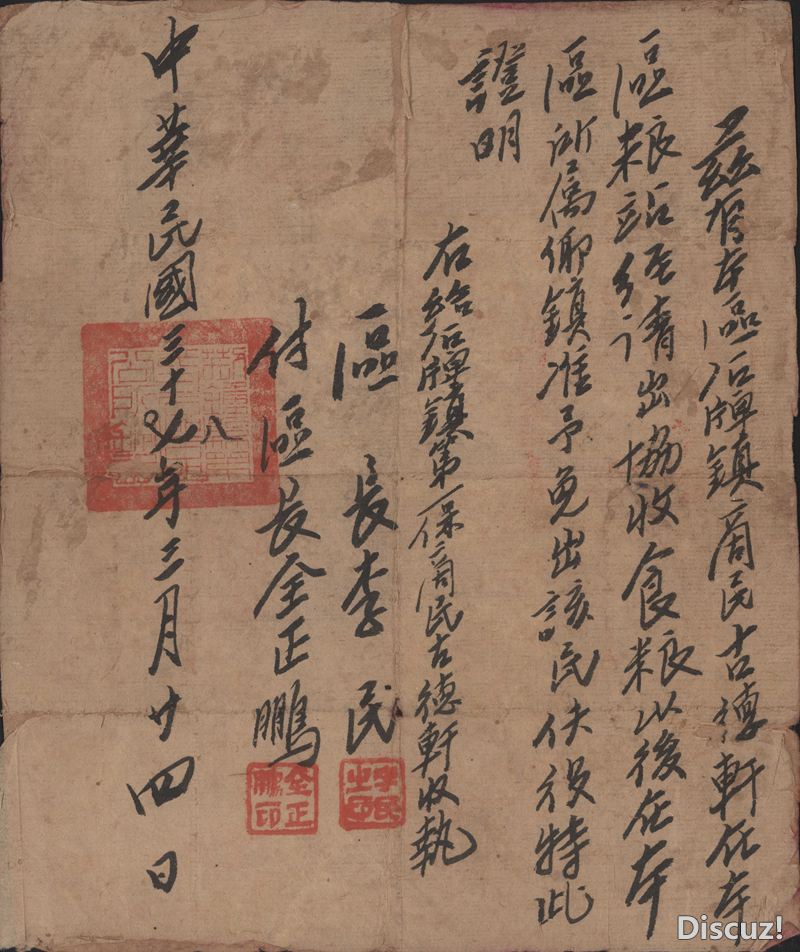 茲有本區石牌鎮商民古德軒在本
區粮站經請出協收食粮以後在本
區所屬鄉鎮准予免出該民伕役特此
證明
右給石牌鎮第一保商民古德軒收執
區長李民
付區長全正鵬
中華民國三十八年三月廿四日
李民之印
全正鵬印
Discuz!